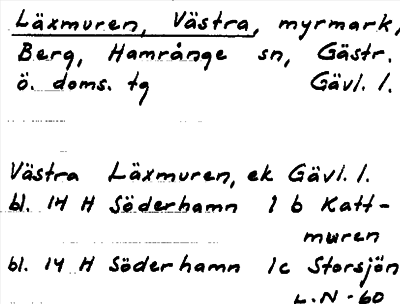 Läxmuren, Västra, myrmark,
Berg, Hamrånge sn, Gästr.
ö. doms. tg Gävl. l.
Västra Läxmuren, ek Gävl. l.
bl. 14 H Söderhamn 1 b Katt-
muren
bl. 14 H Söderhamn 1c Storsjön
L.N-60